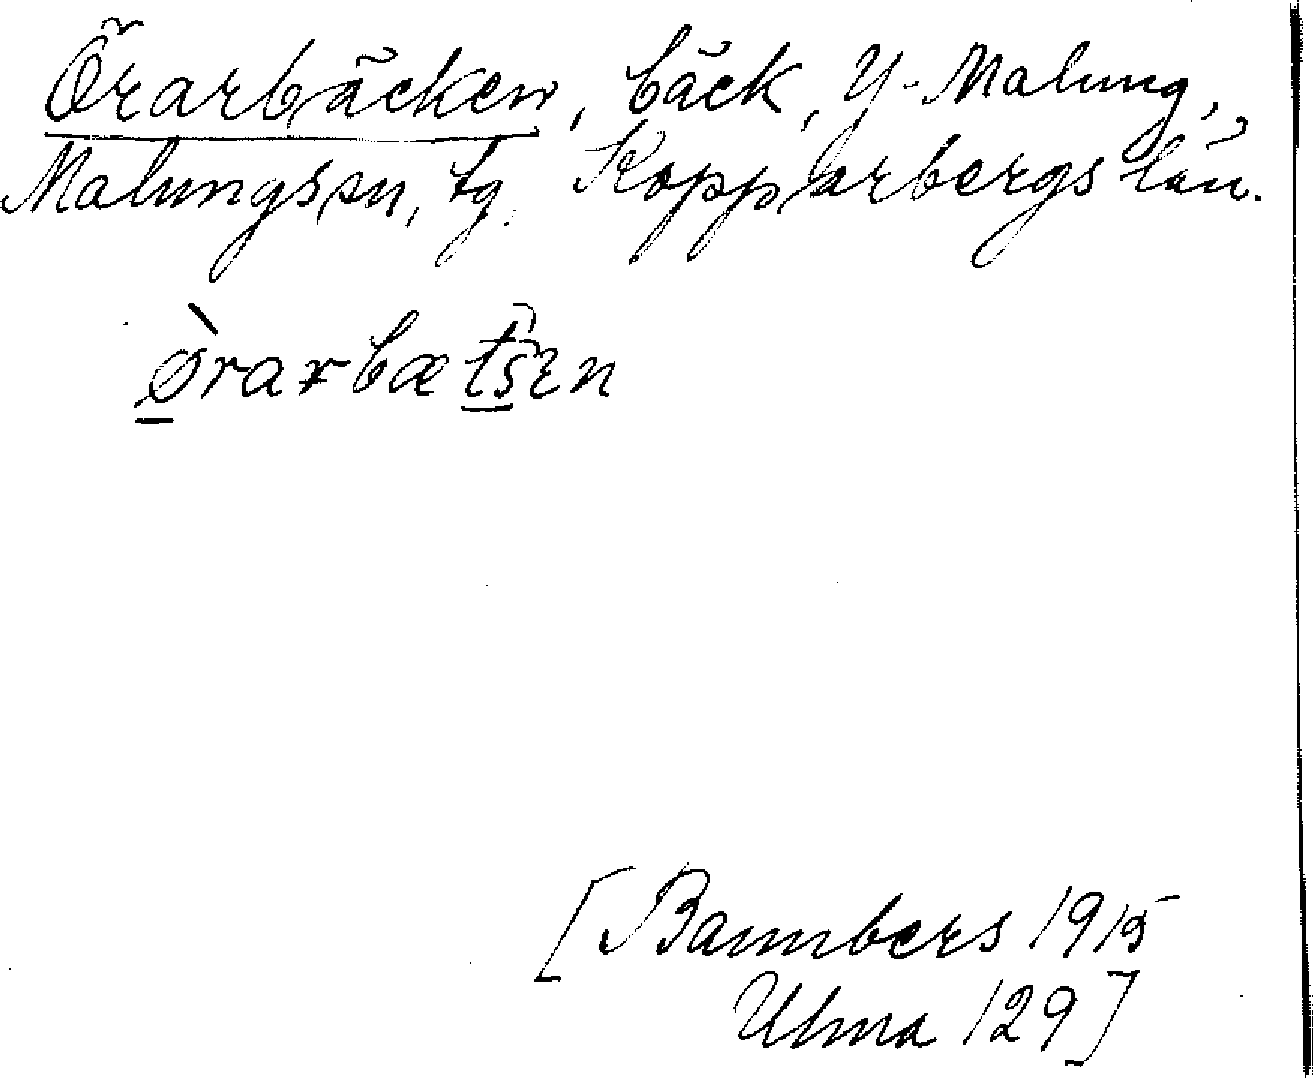 Örarbäcken, bäck, Y. Malung,
Malungs sn, tg. Kopparbergs län.
òrarbætšen
[Bannbers 1915
Ulma 129]